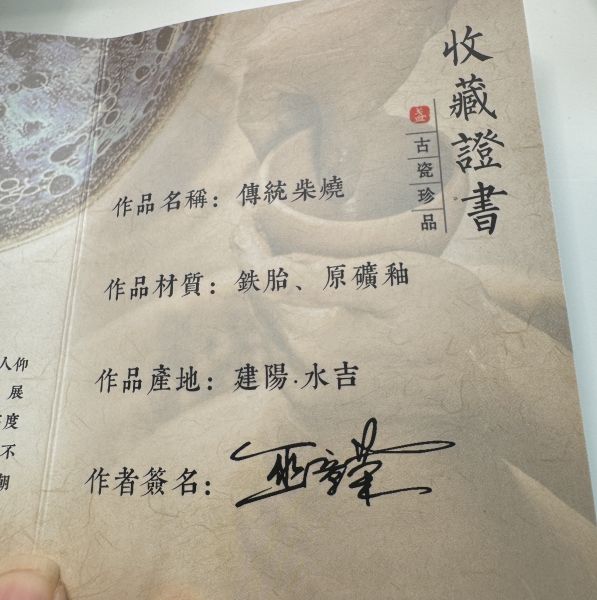 收藏證書
盏
古瓷珍品
作品名稱：傳統柴燒
作品材質：鉄胎、原礦釉
作品產地：建陽·水吉
作者簽名：
人仰
展
度
不
朝